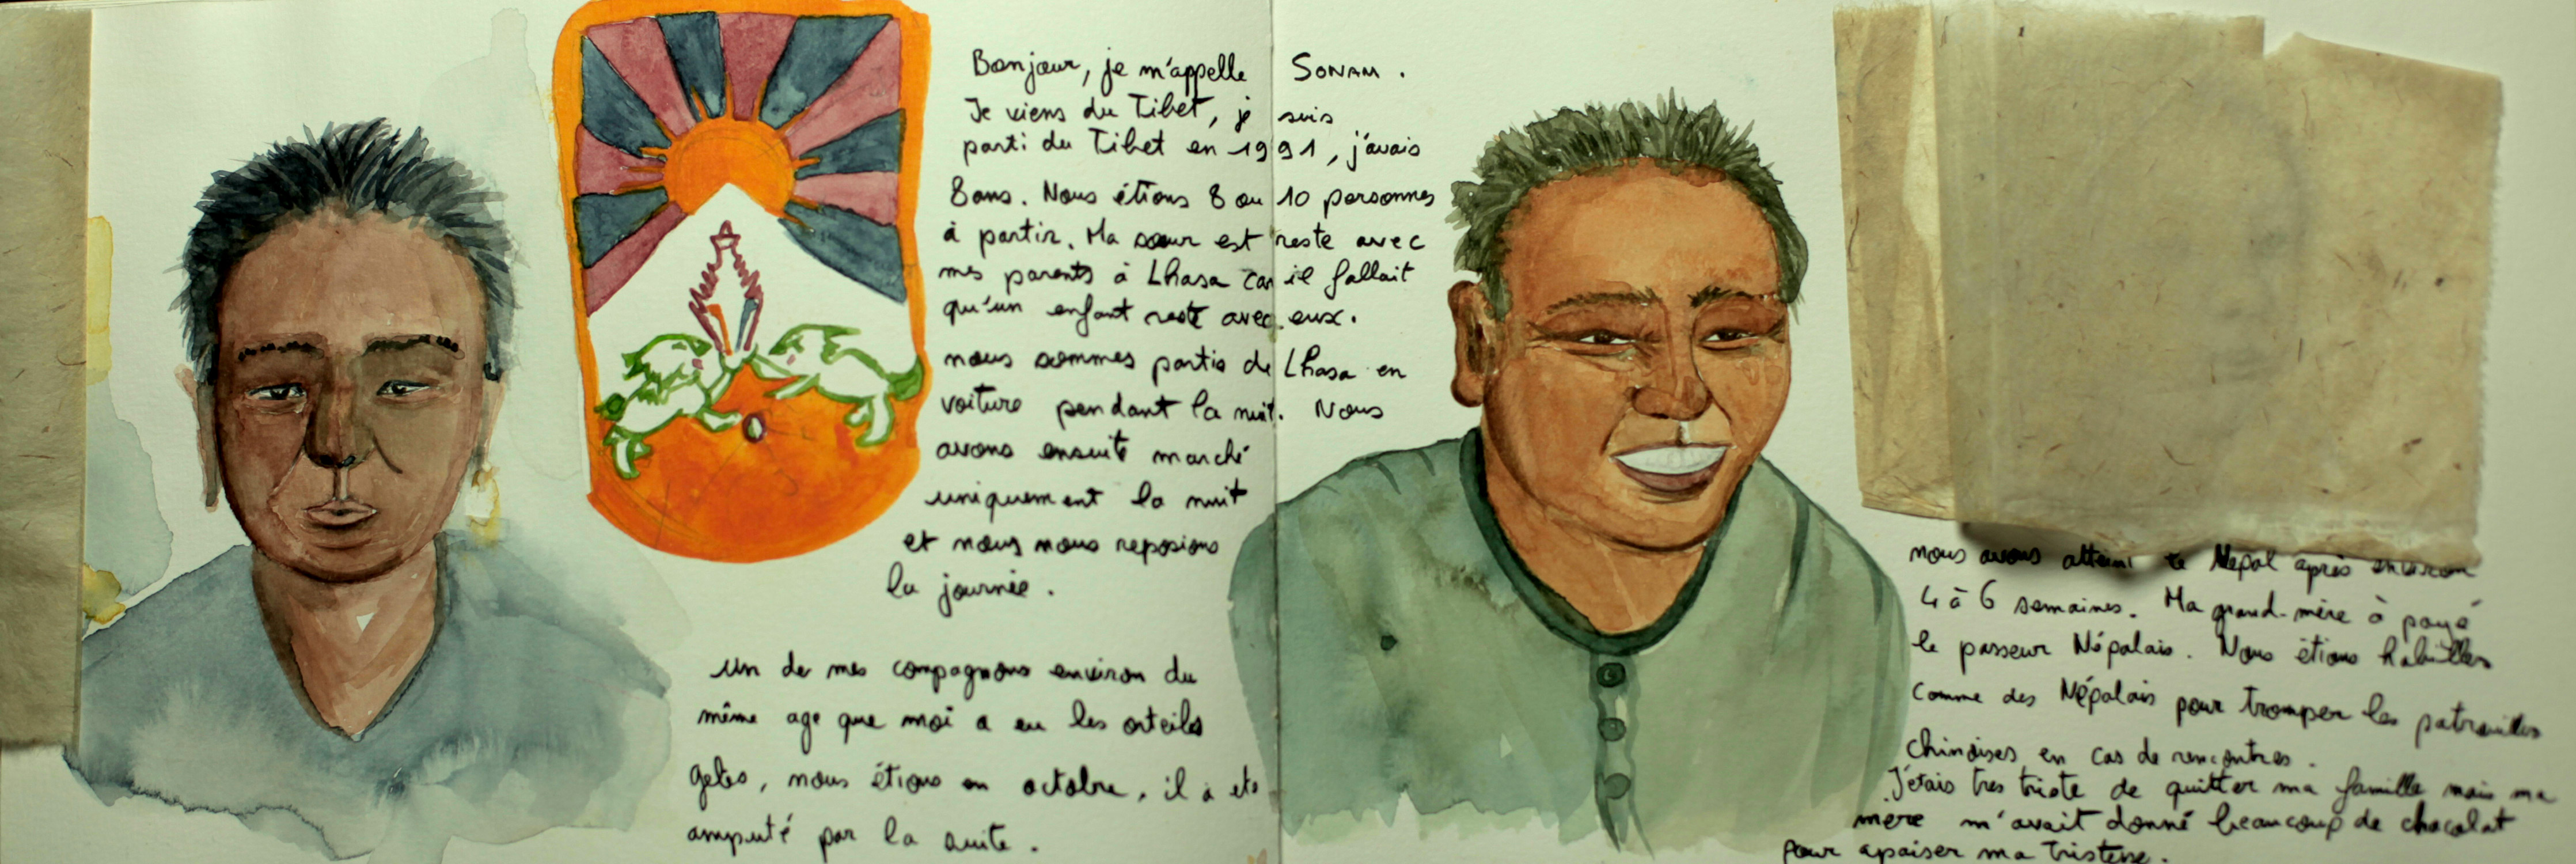 Bonjour, je m'appelle SONAM.
Je viens du Tibet, je suis
parti du Tibet en 1991, j'avais
8 ans. Nous étions 8 ou 10 personnes
à partir. Ma sœur est reste avec
mes parents à Lhasa car il fallait
qu'un enfant reste avec eux.
nous sommes partis de Lhasa en
voiture pendant la nuit. Nous
avons ensuite marché
uniquement la nuit
et nous nous reposions
la journée.
Un de mes compagnons environ du
même age que moi a eu les orteils
gelés, nous étions en octobre, il à ete
amputé par la suite.
nous avons atteint le Népal après environ
4 à 6 semaines. Ma grand-mère à payé
le passeur Népalais. Nous étions habillés
comme des Népalais pour tromper les patrouilles
chinoises en cas de rencontres.
J'étais tres triste de quitter ma famille mais ma
mère m'avait donné beaucoup de chocolat
pour apaiser ma tristesse.